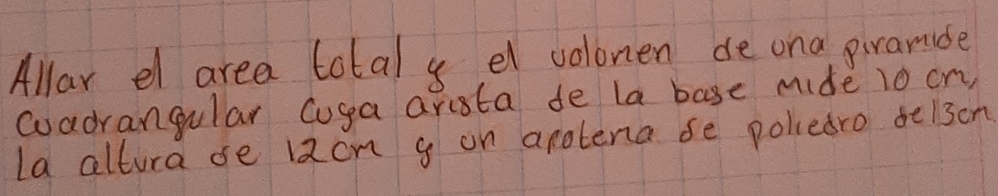 Allar el area total y el volonen de una piramide
cuadrangular cuya arista de la base mide 10 cm,
la altura de 12cm y un apotena de poliedro de 13cm